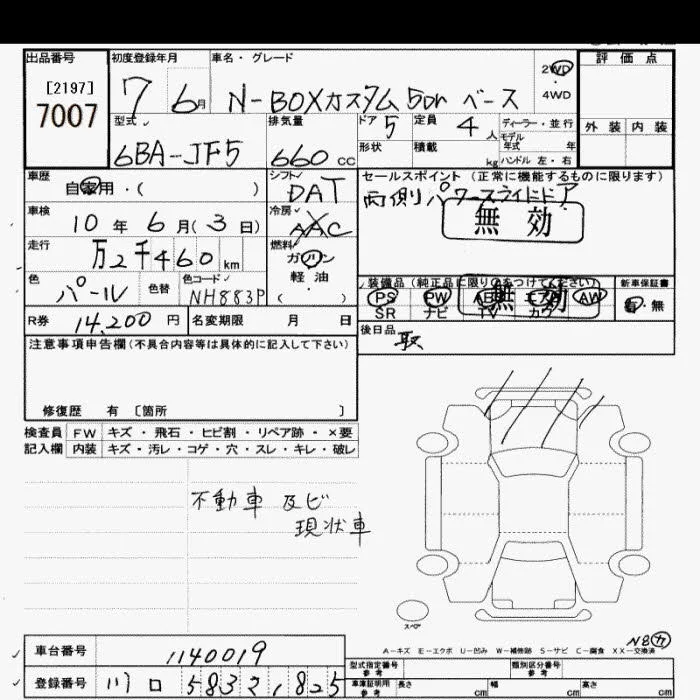 出品番号 初度登録年月 車名・グレード 評価点
[2197]
7007
7 6月 N-BOXカスタム 5Dr ベース 2WD
4WD
型式 排気量 ドア 定員 ディーラー・並行 外装 内装
6BA-JF5 660cc 5 4人 モデル年式 年
形状 積載 kg ハンドル 左・右
車歴 シフト セールスポイント (正常に機能するものに限ります)
自家用・( ) DAT 両側パワースライドドア
無効
車検 10年6月(3日) 冷房 AAC
走行 万2千460km 燃料 ガソリン
軽・油
( )
色 パール 色替 色コード NH883P
装備品 (純正品に限り○をつけてください) 新車保証書
PS PW AB AW 有・無
SR ナビ TV カワ
無効
R券 14,200円 名変期限 月 日
後日品 取
注意事項申告欄(不具合内容等は具体的に記入して下さい)
修復歴 有 [箇所 ]
検査員 FW キズ・飛石・ヒビ割・リペア跡・×要
記入欄 内装 キズ・汚レ・コゲ・穴・スレ・キレ・破レ
不動車 及ビ
現状車
スペア
A-キズ E-エクボ U-凹み W-補修跡 S-サビ C-腐食 XX-交換済
車台番号 1140019
登録番号 川口 583
型式指定番号 参考 類別区分番号 参考
車庫証明用 参考 長さ cm 幅 cm 高さ cm